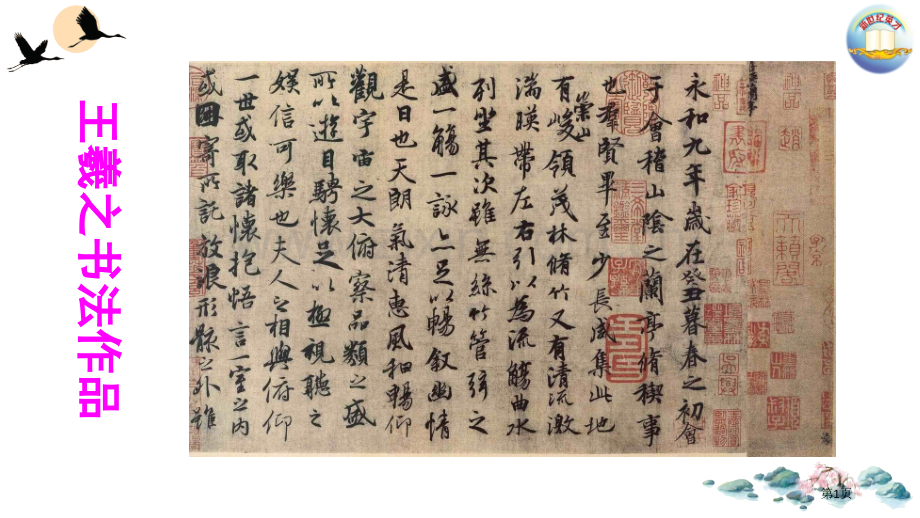 王羲之书法作品
新世纪英才
永和九年歳在癸丑暮春之初會
于會稽山陰之蘭亭脩稧事
也羣賢畢至少長咸集此地
有崇山峻領茂林脩竹又有清流激
湍暎帶左右引以為流觴曲水
列坐其次雖無絲竹管弦之
盛一觴一詠亦足以暢叙幽情
是日也天朗氣清惠風和暢仰
觀宇宙之大俯察品類之盛
所以遊目騁懷足以極視聽之
娛信可樂也夫人之相與俯仰
一世或取諸懷抱悟言一室之內
或因寄所託放浪形骸之外雖
第1页